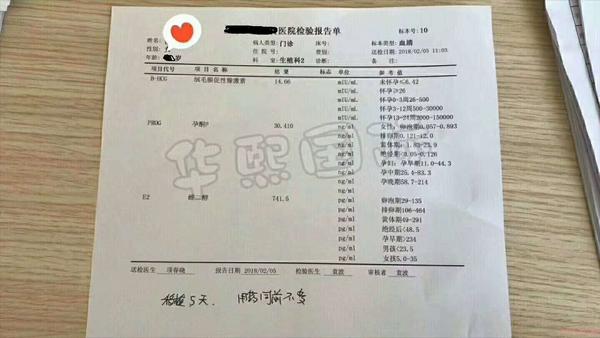 医院检验报告单
标本号：10
姓名
病人类型：门诊
床号：
标本类型：血清
性别：
住院号：
费别：
送检日期：2018/02/05 11:03
年龄：岁
科室：生殖科2
诊断：
备注：
项目代号 项目名称 结果 标志 单位 参考值
B-HCG 绒毛膜促性腺激素 14.66 mIU/mL 未怀孕≤6.42
mIU/mL 怀孕≥26
mIU/mL 怀孕0-3周26-500
mIU/mL 怀孕3-12周500-30000
mIU/mL 怀孕13-24周2000-150000
PROG 孕酮P 30.410 ng/ml 女性：卵泡期0.057-0.893
ng/ml 排卵期0.121-12.0
ng/ml 黄体期：1.83-23.9
ng/ml 绝经期<0.05-0.126
ng/ml 孕妇：孕早期11.0-44.3
ng/ml 孕中期25.4-83.3
ng/ml 孕晚期58.7-214
E2 雌二醇 741.5 pg/ml 卵泡期29-135
pg/ml 排卵期106-464
pg/ml 黄体期49-291
pg/ml 绝经后<48.5
pg/ml 孕早期>234
pg/ml 男孩<23.5
pg/ml 女孩5.0-35
送检医生 项春晓 报告日期 2018/02/05 检验医生 袁波 审核者 袁波
移植5天. 用药同前不变
华熙国